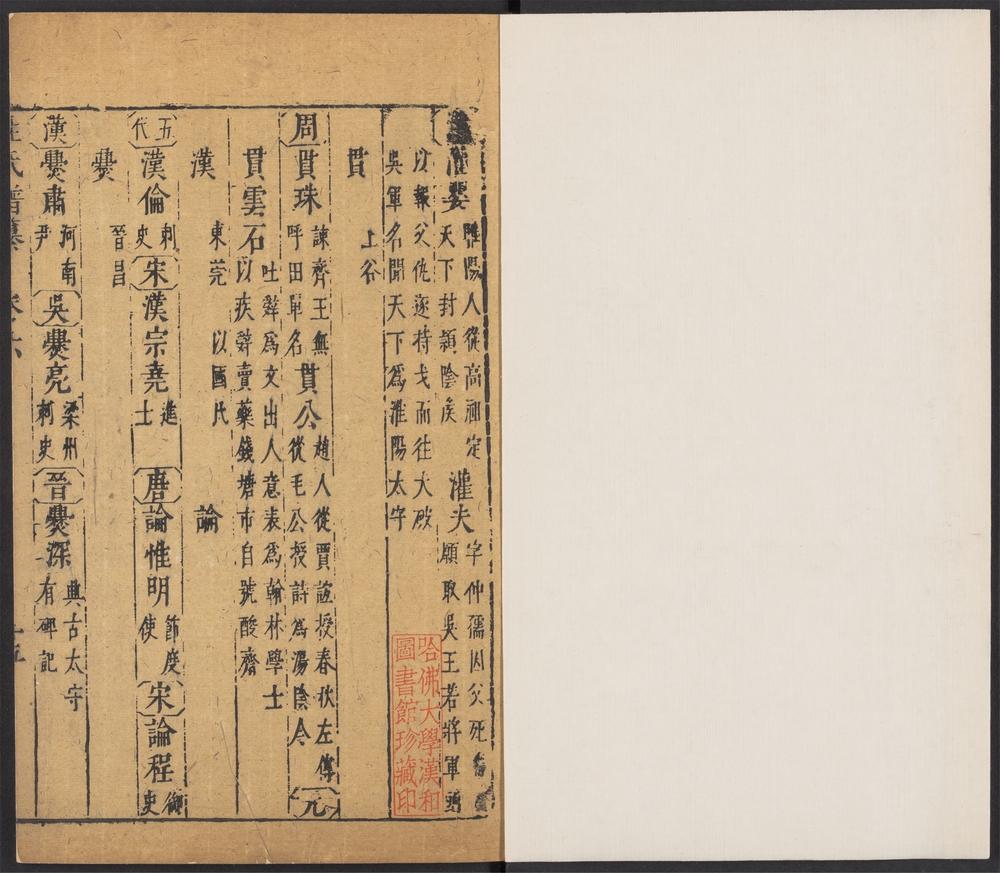 灌嬰 睢陽人從高祖定天下封潁陰侯 灌夫 字仲孺因父死 願取吳王若將軍頭
以報父仇逐持戈而往大破吳軍名聞天下爲淮陽太守
貫 上谷
周 貫珠 諫齊王無呼田單名 貫公 趙人從賈誼授春秋左傳從毛公授詩爲湯陰令 元
貫雲石 吐辭爲文出人意表爲翰林學士以疾辭賣藥錢塘市自號酸齋
漢 東莞 以國氏 論
五代 漢倫 刺史 宋 漢宗堯 進士 唐 論惟明 節度使 宋 論程 御史
爨 晉昌
漢 爨肅 河南尹 吳 爨亮 梁州刺史 晉 爨深 興古太守有碑記
氏譜纂
哈佛大學漢和
圖書館珍藏印